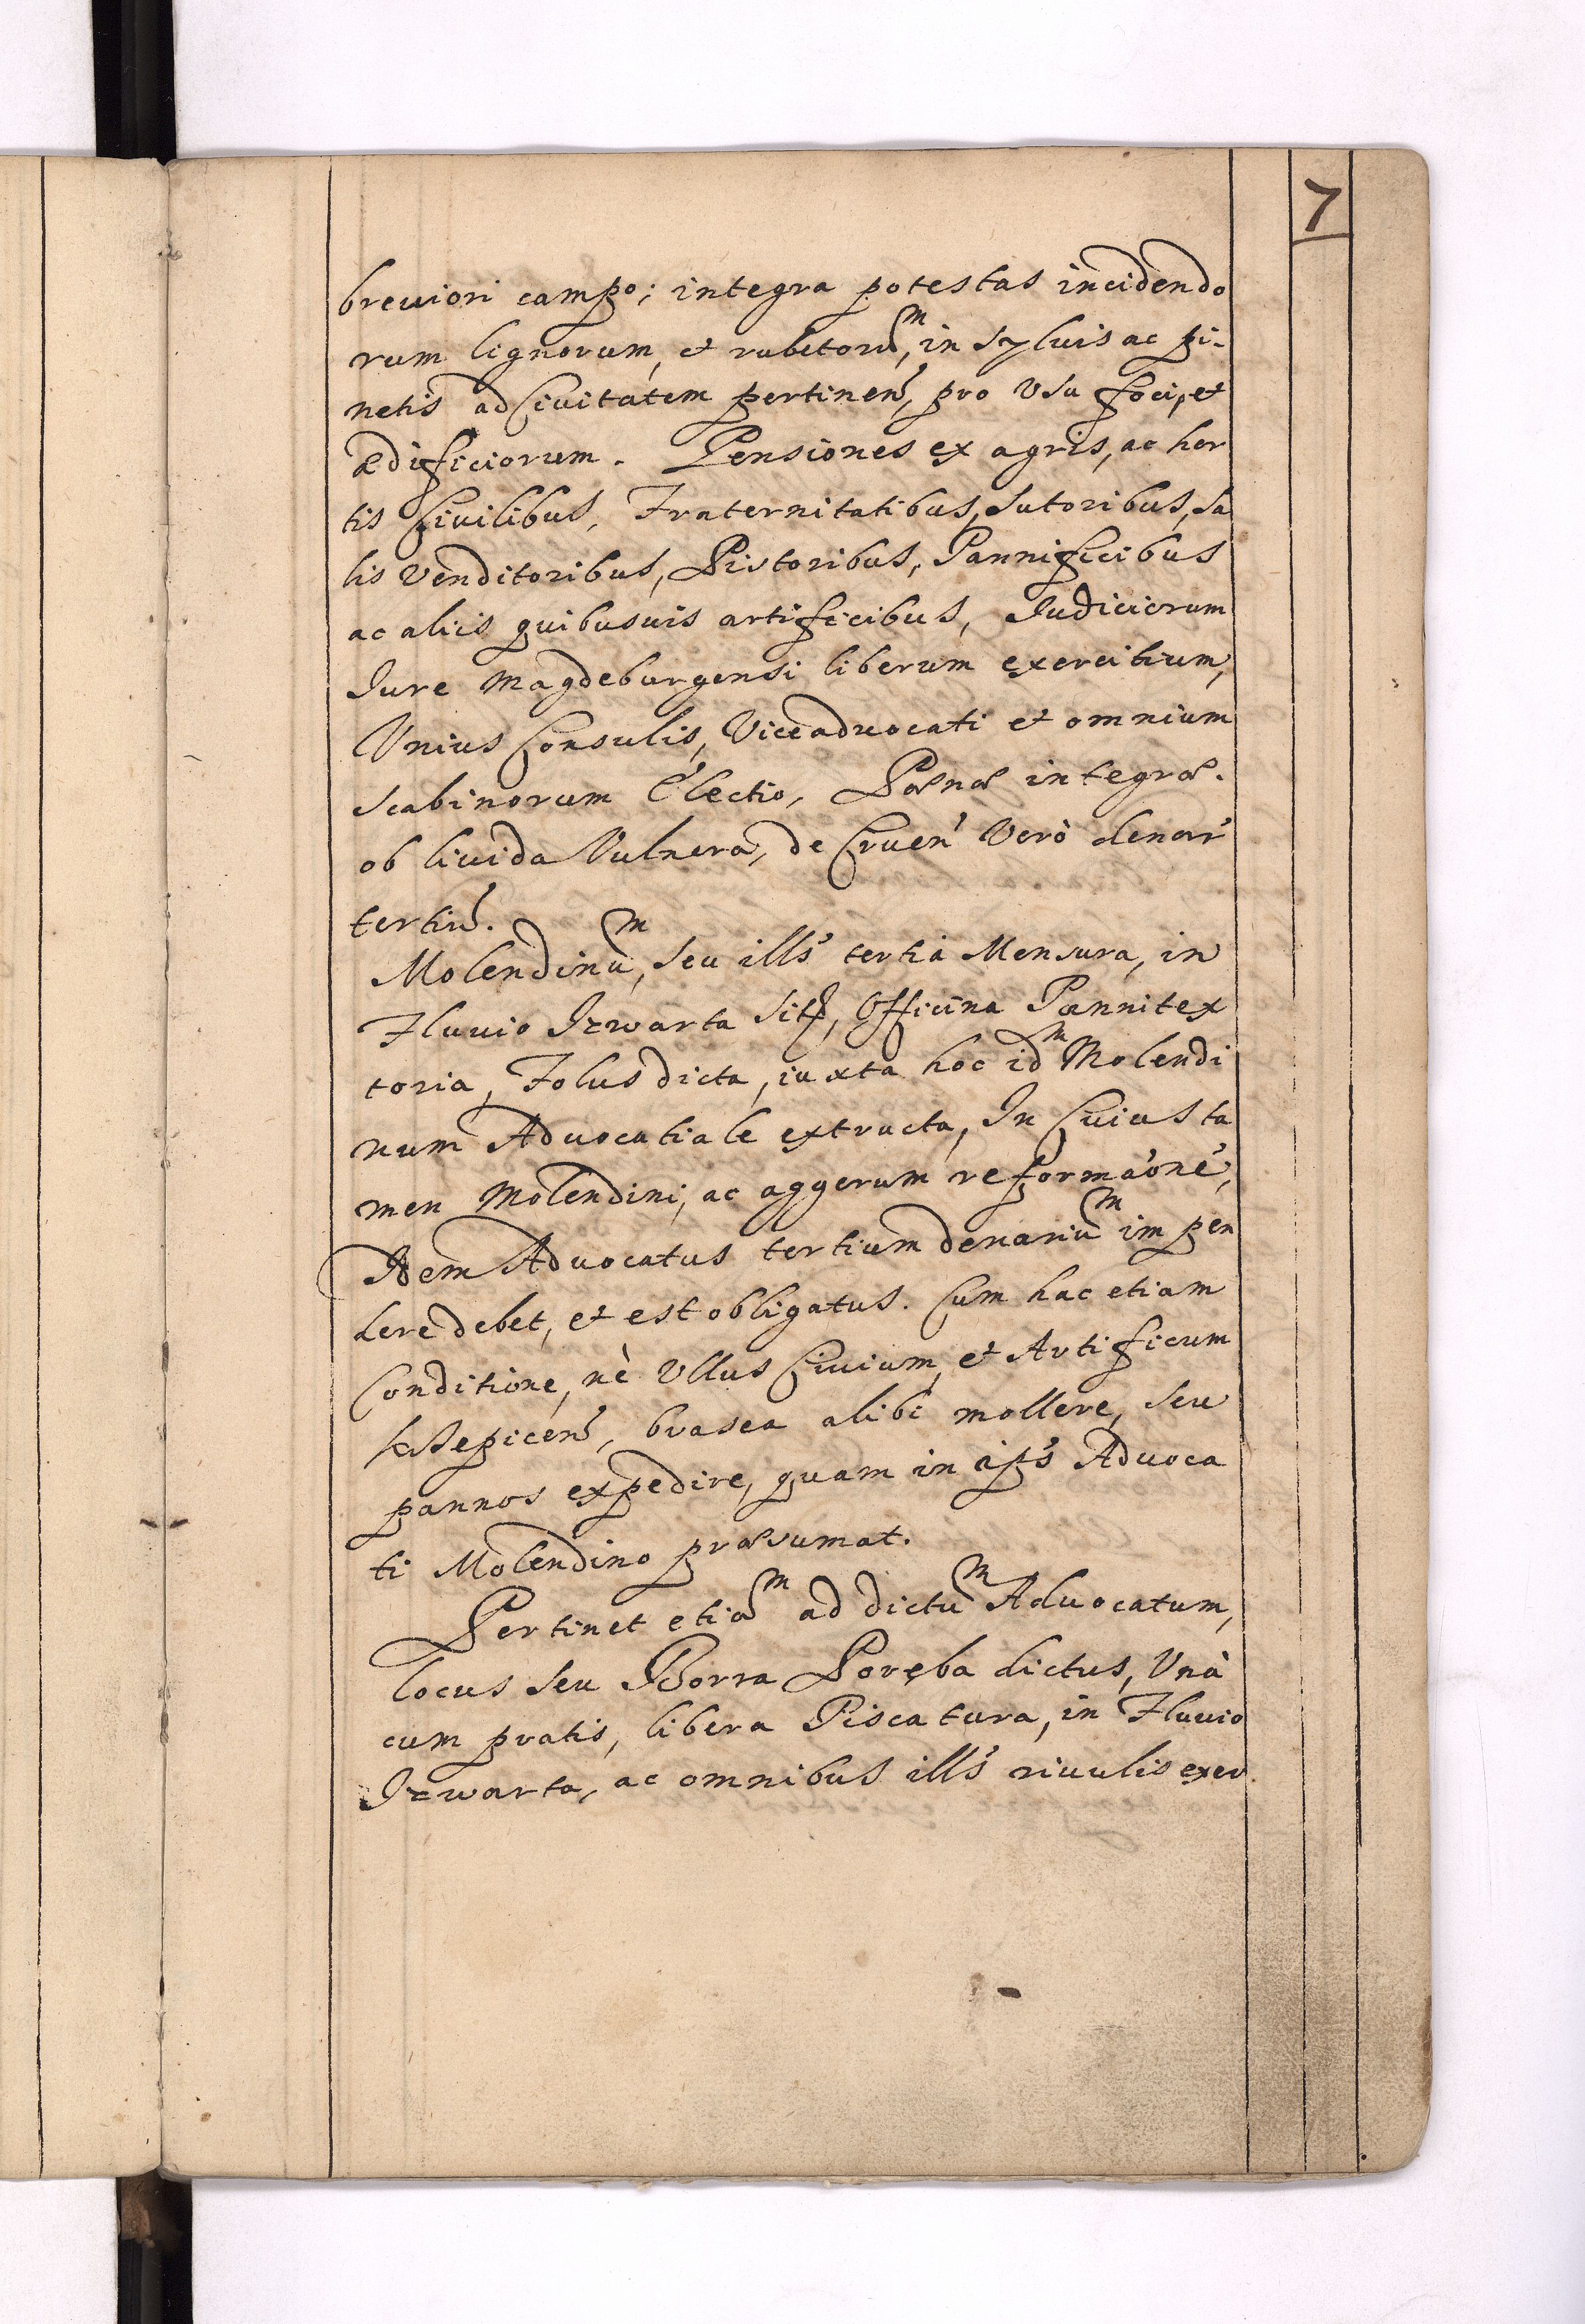 7
breuiori campo; integra potestas incidendo
rum lignorum, et rubetorũ, in Syluis ac pi-
netis ad Ciuitatem pertinen, pro Vsu foci, et
ædificiorum. Pensiones ex agris, ac hor
tis Ciuilibus, Fraternitatibus, Sutoribus, Sa
lis Venditoribus, Pistoribus, Pannificibus
ac aliis quibusuis artificibus, Iudiciorum
Iure Magdeburgensi liberum exercitium,
Vnius Consulis, Viceaduocati et omnium
Scabinorum Electio, Pœnæ integræ.
ob liuida Vulnera, de Cruen' Verò denar'
tertiũ.
Molendinũ, Seu ills' tertia Mensura, in
Fluuio Izwarta Sit, Officina Pannitex
toria, Folus dicta, iuxta hoc idm Molendi
num Aduocatiale extructa, In Cuius ta
men Molendini, ac aggerum reformaõne',
Idem Aduocatus tertium denariũ impen
dere debet, et est obligatus. Cum hac etiam
Conditione, nè Vllus Ciuium, et Artificum
Krzepicen, brasea alibi mollere, Seu
pannos expedire, quam in ips' Aduoca
ti Molendino præsumat.
Pertinet etiã ad dictũ Aduocatum,
locus Seu Borra Poręba dictus, Vnà
cum pratis, libera Piscatura, in Fluuio
Izwarta, ac omnibus ills' riuulis exer